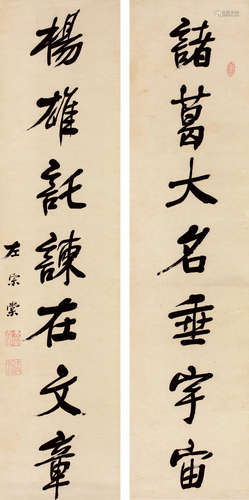 諸葛大名垂宇宙
楊雄託諫在文章
左宗棠